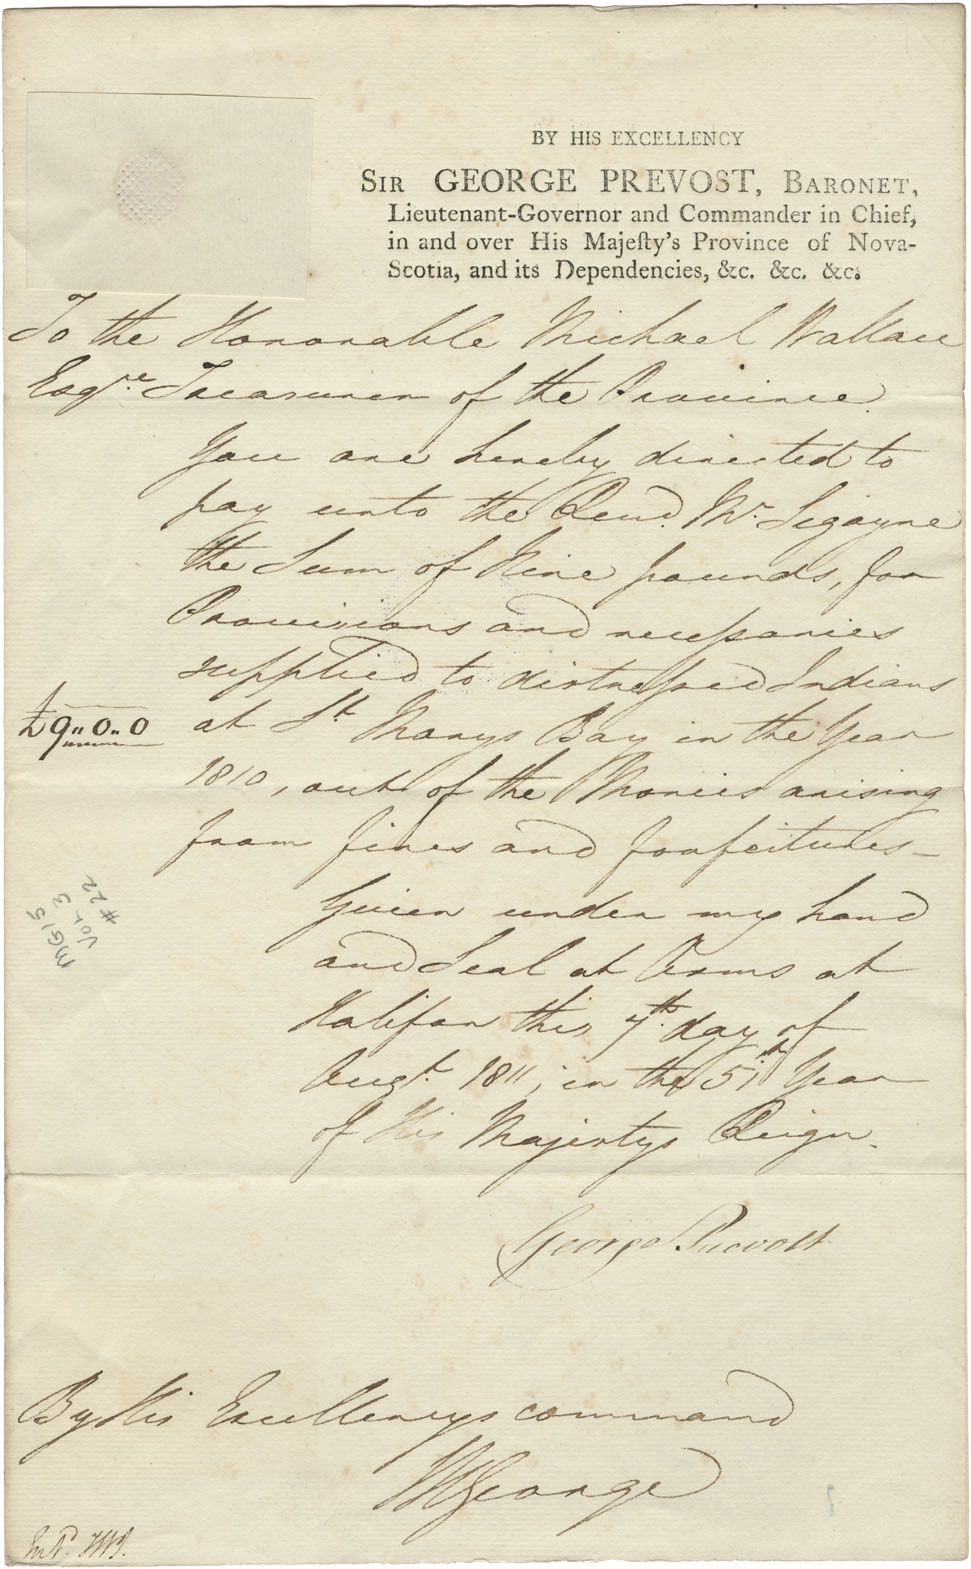 BY HIS EXCELLENCY
SIR GEORGE PREVOST, BARONET,
Lieutenant-Governor and Commander in Chief,
in and over His Majeſty's Province of Nova-
Scotia, and its Dependencies, &c. &c. &c.
To the Honorable Michael Wallace
Esqre. Treasurer of the Province.
You are hereby directed to
pay unto the Revd. Mr. Sigogne
the Sum of Nine pounds, for
Provisions and necessaries
supplied to distressed Indians
£9.. 0.. 0
at St. Marys Bay in the Year
1810, out of the Monies arising
from fines and forfeitures_
Given under my hand
and Seal at Arms at
Halifax this 7th. day of
Augt. 1811, in the 51th Year
of His Majestys Reign.
George Prevost
By His Excellencys command
HHGeorge
MG15
VOL 3
#22